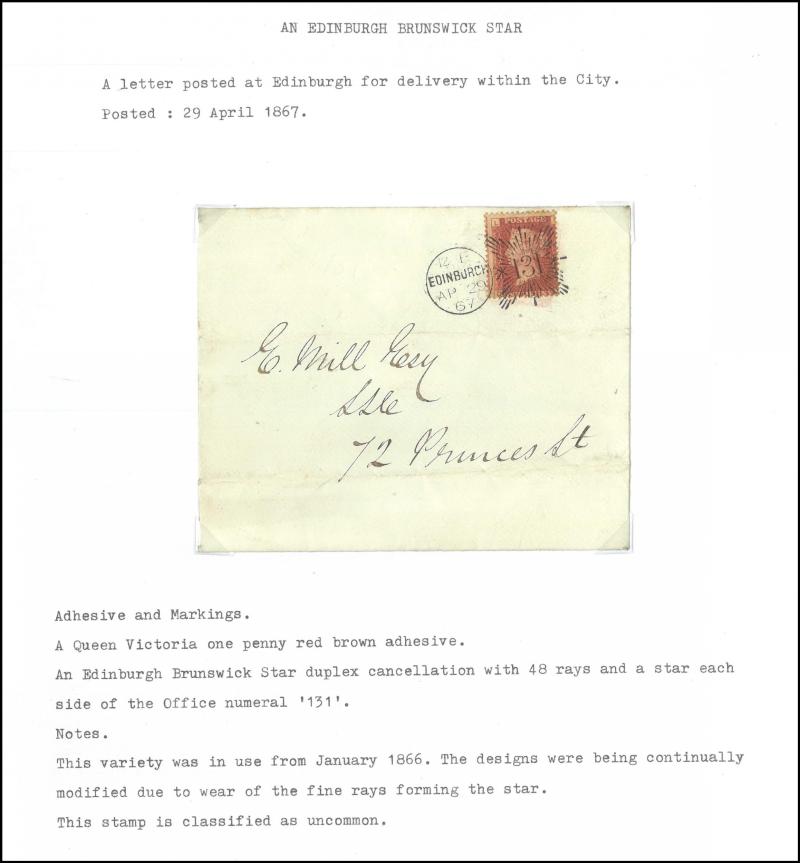 AN EDINBURGH BRUNSWICK STAR
A letter posted at Edinburgh for delivery within the City.
Posted : 29 April 1867.
L POSTAGE
131
EDINBURGH
AP 29
67
E. Mill Esq
72 Princes St
Adhesive and Markings.
A Queen Victoria one penny red brown adhesive.
An Edinburgh Brunswick Star duplex cancellation with 48 rays and a star each
side of the Office numeral '131'.
Notes.
This variety was in use from January 1866. The designs were being continually
modified due to wear of the fine rays forming the star.
This stamp is classified as uncommon.